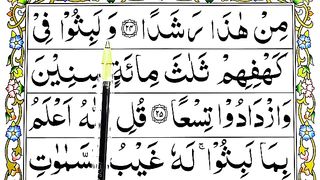 مِنْ هٰذَا رَشَدًا ﴿۲۴﴾ وَلَبِثُوْا فِیْ
كَهْفِهِمْ ثَلٰثَ مِائَةٍ سِنِیْنَ
وَازْدَادُوْا تِسْعًا ﴿۲۵﴾ قُلِ اللّٰهُ اَعْلَمُ
بِمَا لَبِثُوْا ۚ لَهٗ غَیْبُ السَّمٰوٰتِ